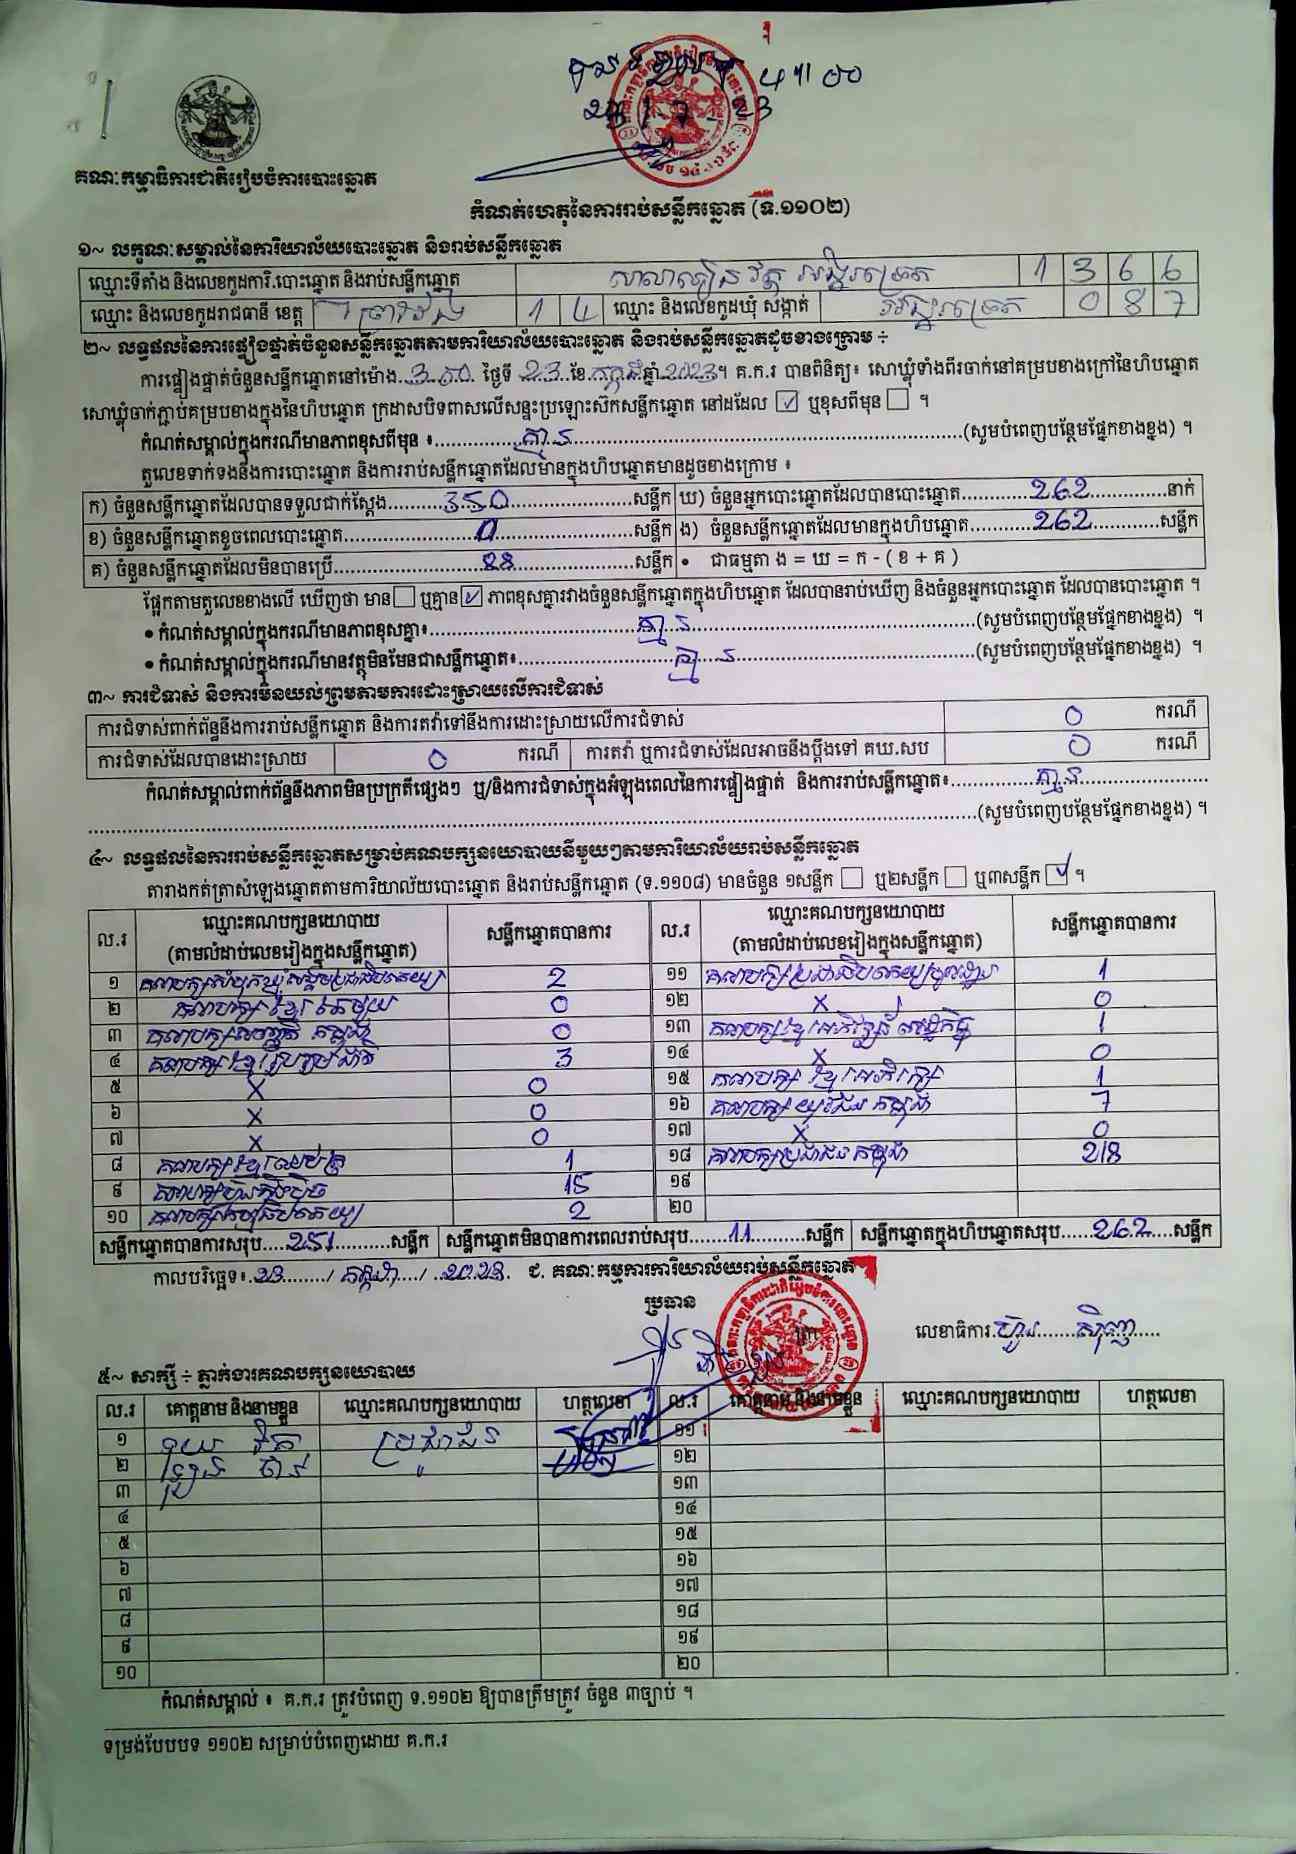 គណៈកម្មាធិការជាតិរៀបចំការបោះឆ្នោត
កំណត់ហេតុនៃការរាប់សន្លឹកឆ្នោត (ទ.១១០២)
១~ លក្ខណៈសម្គាល់នៃការិយាល័យបោះឆ្នោត និងរាប់សន្លឹកឆ្នោត
ឈ្មោះទីតាំង និងលេខកូដការិ.បោះឆ្នោត និងរាប់សន្លឹកឆ្នោត 1 3 6 6
ឈ្មោះ និងលេខកូដរាជធានី ខេត្ត ព្រៃវែង 1 4 ឈ្មោះ និងលេខកូដឃុំ សង្កាត់ 0 8 7
២~ លទ្ធផលនៃការផ្ទៀងផ្ទាត់ចំនួនសន្លឹកឆ្នោតតាមការិយាល័យបោះឆ្នោត និងរាប់សន្លឹកឆ្នោតដូចខាងក្រោម ÷
ការផ្ទៀងផ្ទាត់ចំនួនសន្លឹកឆ្នោតនៅម៉ោង ថ្ងៃទី 23 ខែ កក្កដា ឆ្នាំ 2023។ គ.ក.រ បានពិនិត្យ៖ សោឃ្លុំទាំងពីរចាក់នៅគម្របខាងក្រៅនៃហិបឆ្នោត
សោឃ្លុំចាក់ភ្ជាប់គម្របខាងក្នុងនៃហិបឆ្នោត ក្រដាសបិទពាសលើសន្ទះប្រឡោះស៊កសន្លឹកឆ្នោត នៅដដែល ☑ ឬខុសពីមុន ☐ ។
កំណត់សម្គាល់ក្នុងករណីមានភាពខុសពីមុន ៖ គ្មាន (សូមបំពេញបន្ថែមផ្នែកខាងខ្នង) ។
តួលេខទាក់ទងនឹងការបោះឆ្នោត និងការរាប់សន្លឹកឆ្នោតដែលមានក្នុងហិបឆ្នោតមានដូចខាងក្រោម ៖
ក) ចំនួនសន្លឹកឆ្នោតដែលបានទទួលជាក់ស្តែង 350 សន្លឹក ឃ) ចំនួនអ្នកបោះឆ្នោតដែលបានបោះឆ្នោត 262 នាក់
ខ) ចំនួនសន្លឹកឆ្នោតខូចពេលបោះឆ្នោត 0 សន្លឹក ង) ចំនួនសន្លឹកឆ្នោតដែលមានក្នុងហិបឆ្នោត 262 សន្លឹក
គ) ចំនួនសន្លឹកឆ្នោតដែលមិនបានប្រើ 88 សន្លឹក • ជាធម្មតា ង = ឃ = ក - ( ខ + គ )
ផ្អែកតាមតួលេខខាងលើ ឃើញថា មាន ☐ ឬគ្មាន ☑ ភាពខុសគ្នារវាងចំនួនសន្លឹកឆ្នោតក្នុងហិបឆ្នោត ដែលបានរាប់ឃើញ និងចំនួនអ្នកបោះឆ្នោត ដែលបានបោះឆ្នោត ។
• កំណត់សម្គាល់ក្នុងករណីមានភាពខុសគ្នា៖ គ្មាន (សូមបំពេញបន្ថែមផ្នែកខាងខ្នង) ។
• កំណត់សម្គាល់ក្នុងករណីមានវត្ថុមិនមែនជាសន្លឹកឆ្នោត៖ គ្មាន (សូមបំពេញបន្ថែមផ្នែកខាងខ្នង) ។
៣~ ការជំទាស់ និងការមិនយល់ព្រមតាមការដោះស្រាយលើការជំទាស់
ការជំទាស់ពាក់ព័ន្ធនឹងការរាប់សន្លឹកឆ្នោត និងការតវ៉ាទៅនឹងការដោះស្រាយលើការជំទាស់ 0 ករណី
ការជំទាស់ដែលបានដោះស្រាយ 0 ករណី ការតវ៉ា ឬការជំទាស់ដែលអាចនឹងប្តឹងទៅ គឃ.សប 0 ករណី
កំណត់សម្គាល់ពាក់ព័ន្ធនឹងភាពមិនប្រក្រតីផ្សេងៗ ឬ/និងការជំទាស់ក្នុងអំឡុងពេលនៃការផ្ទៀងផ្ទាត់ និងការរាប់សន្លឹកឆ្នោត៖ គ្មាន
(សូមបំពេញបន្ថែមផ្នែកខាងខ្នង) ។
៤~ លទ្ធផលនៃការរាប់សន្លឹកឆ្នោតសម្រាប់គណបក្សនយោបាយនីមួយៗតាមការិយាល័យរាប់សន្លឹកឆ្នោត
តារាងកត់ត្រាសំឡេងឆ្នោតតាមការិយាល័យបោះឆ្នោត និងរាប់សន្លឹកឆ្នោត (ទ.១១០៨) មានចំនួន ១សន្លឹក ☐ ឬ២សន្លឹក ☐ ឬ៣សន្លឹក ☑ ។
ល.រ ឈ្មោះគណបក្សនយោបាយ (តាមលំដាប់លេខរៀងក្នុងសន្លឹកឆ្នោត) សន្លឹកឆ្នោតបានការ ល.រ ឈ្មោះគណបក្សនយោបាយ (តាមលំដាប់លេខរៀងក្នុងសន្លឹកឆ្នោត) សន្លឹកឆ្នោតបានការ
១ គណបក្សសំបុកឃ្មុំសង្គមប្រជាធិបតេយ្យ 2 ១១ 1
២ គណបក្សខ្មែរតែមួយ 0 ១២ x 0
៣ 0 ១៣ គណបក្សខ្មែរអភិវឌ្ឍន៍សេដ្ឋកិច្ច 1
៤ គណបក្សខ្មែររួបរួមជាតិ 3 ១៤ x 0
៥ x 0 ១៥ គណបក្ស ខ្មែរអភិរក្ស 1
៦ x 0 ១៦ គណបក្ស យុវជនកម្ពុជា 7
៧ x 0 ១៧ x 0
៨ 1 ១៨ គណបក្សប្រជាជនកម្ពុជា 218
៩ គណបក្សហ៊្វុនស៊ិនប៉ិច 15 ១៩
១០ 2 ២០
សន្លឹកឆ្នោតបានការសរុប 251 សន្លឹក សន្លឹកឆ្នោតមិនបានការពេលរាប់សរុប 11 សន្លឹក សន្លឹកឆ្នោតក្នុងហិបឆ្នោតសរុប 262 សន្លឹក
កាលបរិច្ឆេទ៖ 23 / កក្កដា / 2023. ជ. គណៈកម្មការការិយាល័យរាប់សន្លឹកឆ្នោត
ប្រធាន
លេខាធិការ
៥~ សាក្សី ÷ ភ្នាក់ងារគណបក្សនយោបាយ
ល.រ គោត្តនាម និងនាមខ្លួន ឈ្មោះគណបក្សនយោបាយ ហត្ថលេខា ល.រ គោត្តនាម និងនាមខ្លួន ឈ្មោះគណបក្សនយោបាយ ហត្ថលេខា
១ ប្រជាជន ១១
២ ១២
៣ ១៣
៤ ១៤
៥ ១៥
៦ ១៦
៧ ១៧
៨ ១៨
៩ ១៩
១០ ២០
កំណត់សម្គាល់ ៖ គ.ក.រ ត្រូវបំពេញ ទ.១១០២ ឱ្យបានត្រឹមត្រូវ ចំនួន ៣ច្បាប់ ។
ទម្រង់បែបបទ ១១០២ សម្រាប់បំពេញដោយ គ.ក.រ